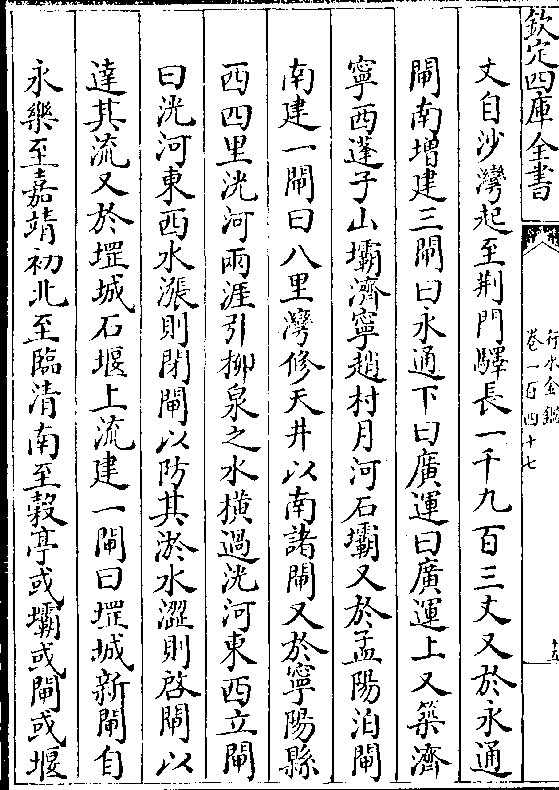 欽定四庫全書
行水金鑑
卷一百四十七
十五
丈自沙灣起至荆門驛長一千九百三丈又於永通
閘南增建三閘曰永通下曰廣運曰廣運上又築濟
寧西蓬子山壩濟寧趙村月河石壩又於孟陽泊閘
南建一閘曰八里灣修天井以南諸閘又於寧陽縣
西四里洸河兩涯引柳泉之水橫過洸河東西立閘
曰洸河東西水漲則閉閘以防其淤水澀則啓閘以
達其流又於堽城石堰上流建一閘曰堽城新閘自
永樂至嘉靖初北至臨清南至穀亭或壩或閘或堰